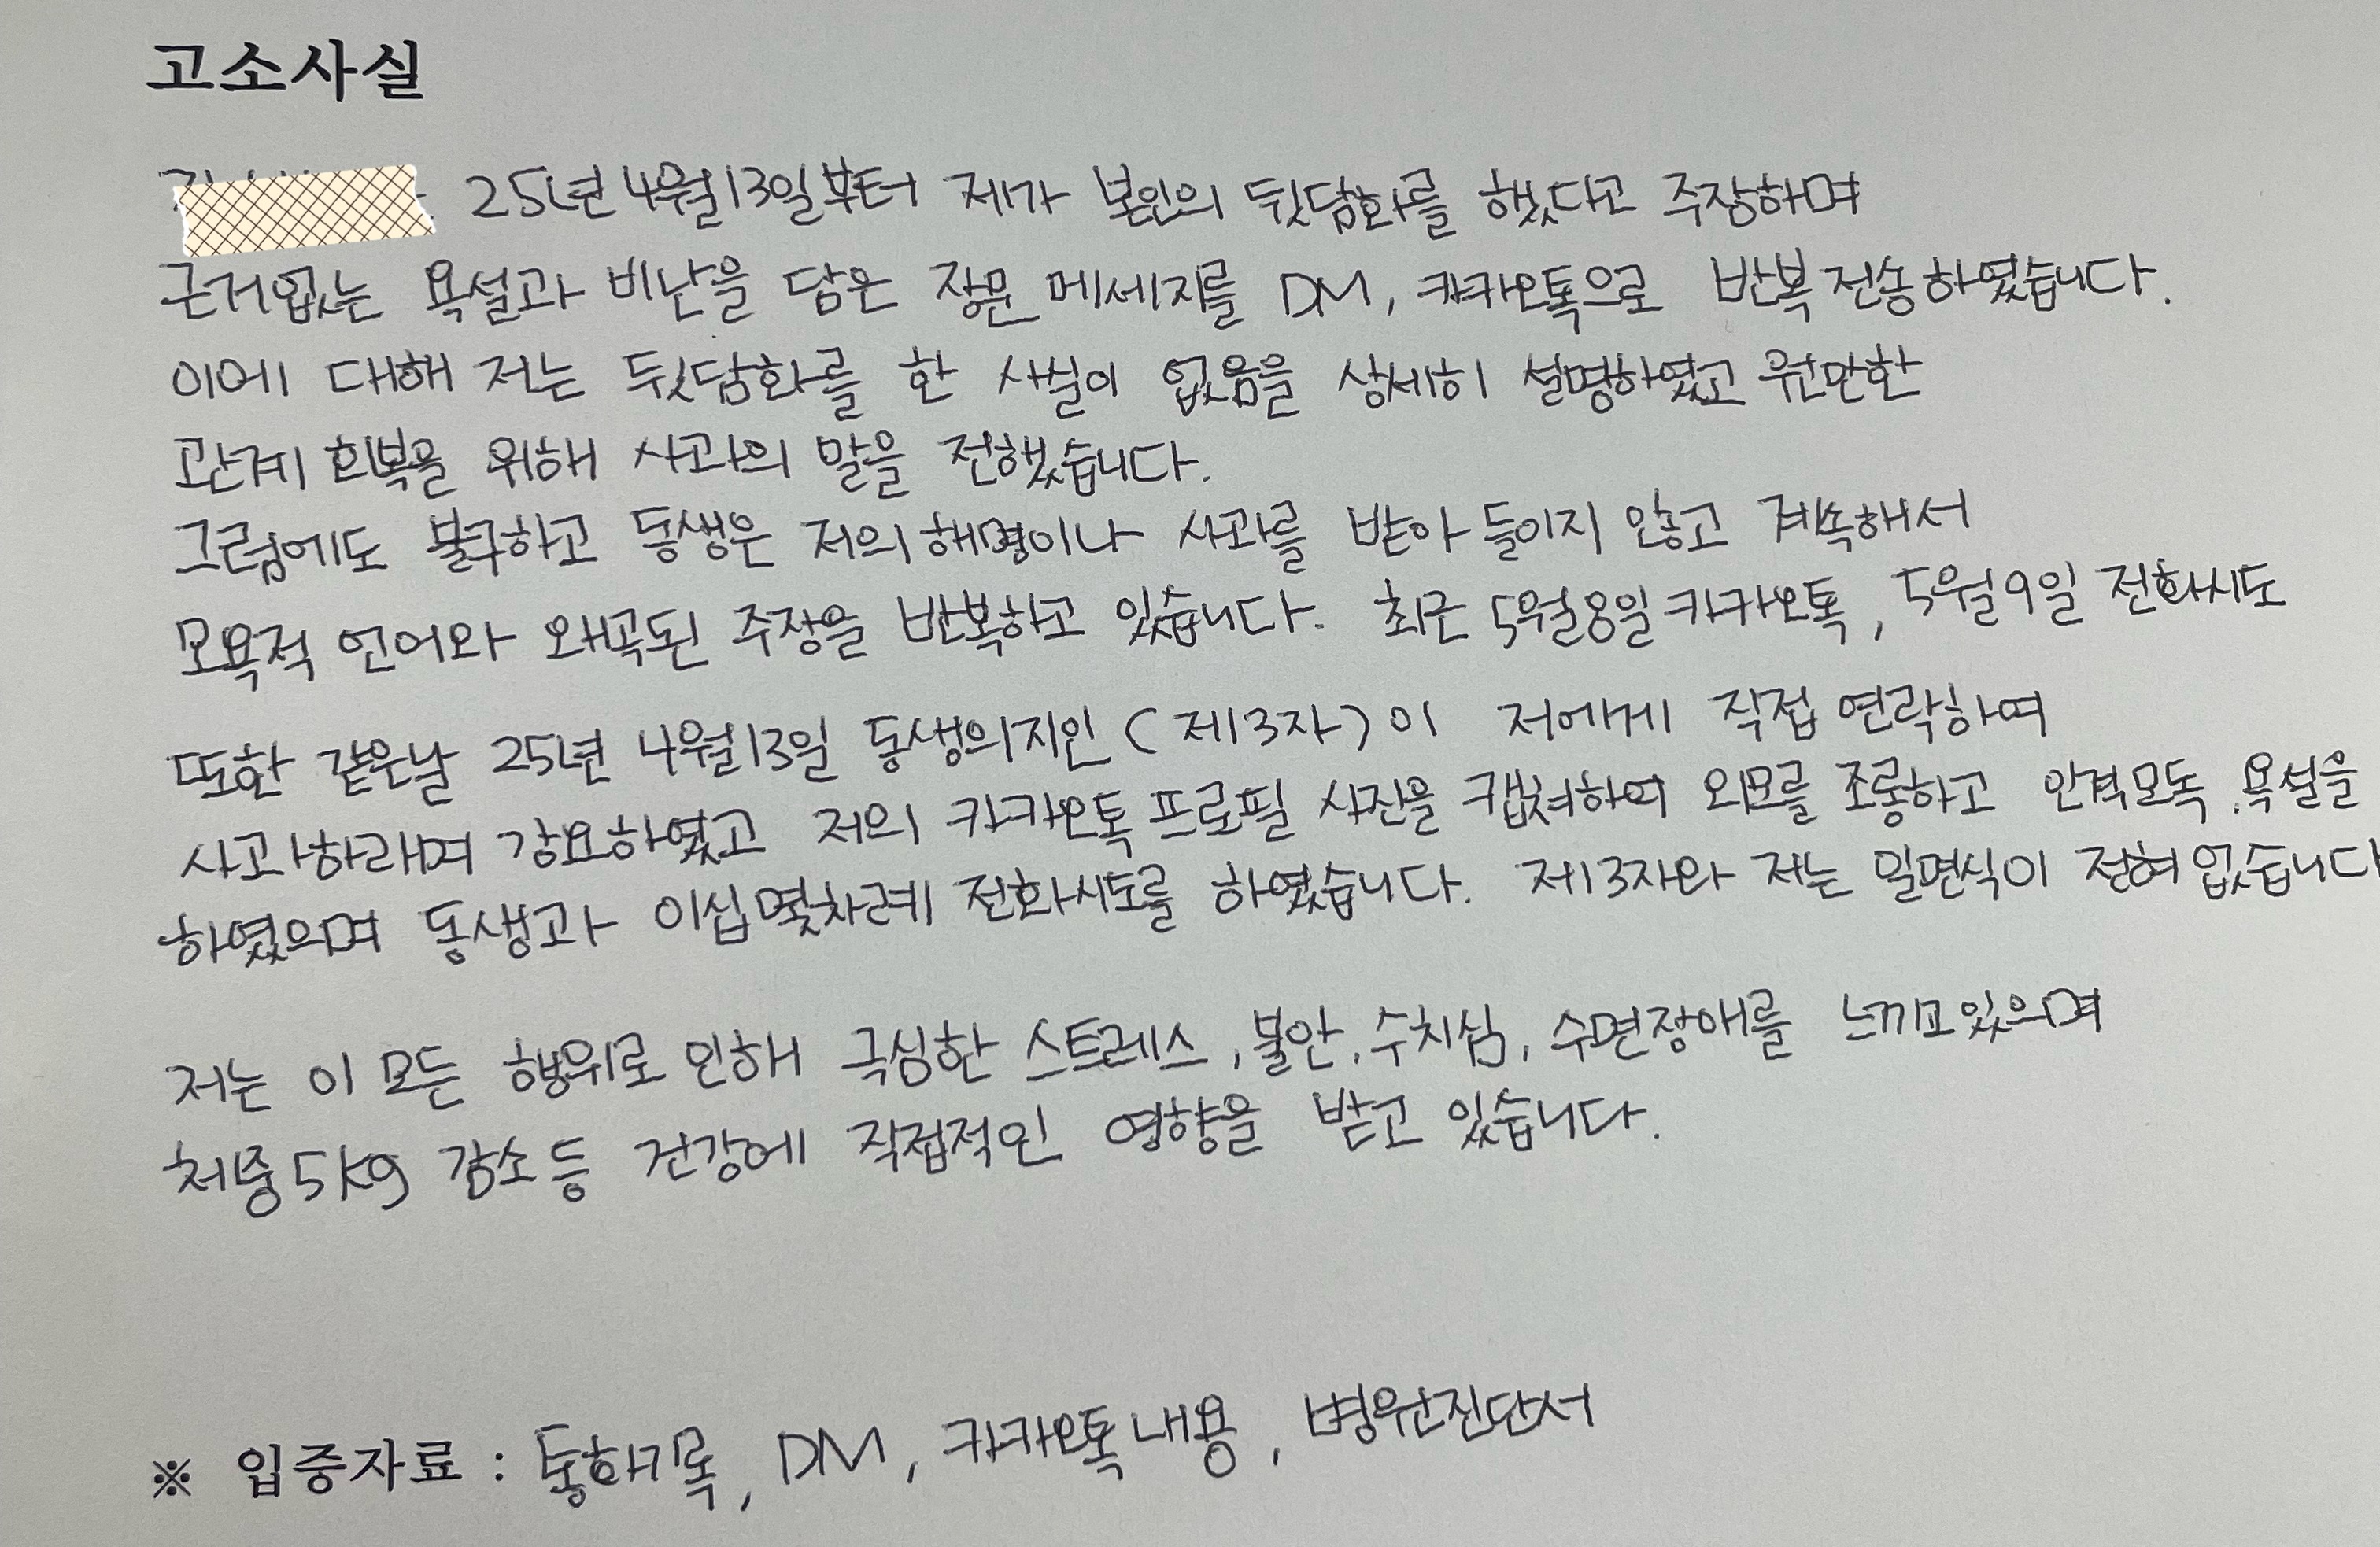 고소사실
25년 4월13일부터 제가 본인의 뒷담화를 했다고 주장하며
근거없는 욕설과 비난을 담은 장문 메세지를 DM, 카카오톡으로 반복 전송하였습니다.
이에 대해 저는 뒷담화를 한 사실이 없음을 상세히 설명하였고 원만한
관계 회복을 위해 사과의 말을 전했습니다.
그럼에도 불구하고 동생은 저의 해명이나 사과를 받아 들이지 않고 계속해서
모욕적 언어와 왜곡된 주장을 반복하고 있습니다. 최근 5월8일 카카오톡, 5월9일 전화시도
또한 같은날 25년 4월13일 동생의지인 (제13자)이 저에게 직접 연락하여
사과하라며 강요하였고 저의 카카오톡 프로필 사진을 캡쳐하여 외모를 조롱하고 인격모독, 욕설을
하였으며 동생과 이십몇차례 전화시도를 하였습니다. 제13자와 저는 일면식이 전혀 없습니다
저는 이 모든 행위로 인해 극심한 스트레스, 불안, 수치심, 수면장애를 느끼고 있으며
체중 5kg 감소 등 건강에 직접적인 영향을 받고 있습니다.
※ 입증자료 : 통화기록, DM, 카카오톡 내용, 병원진단서